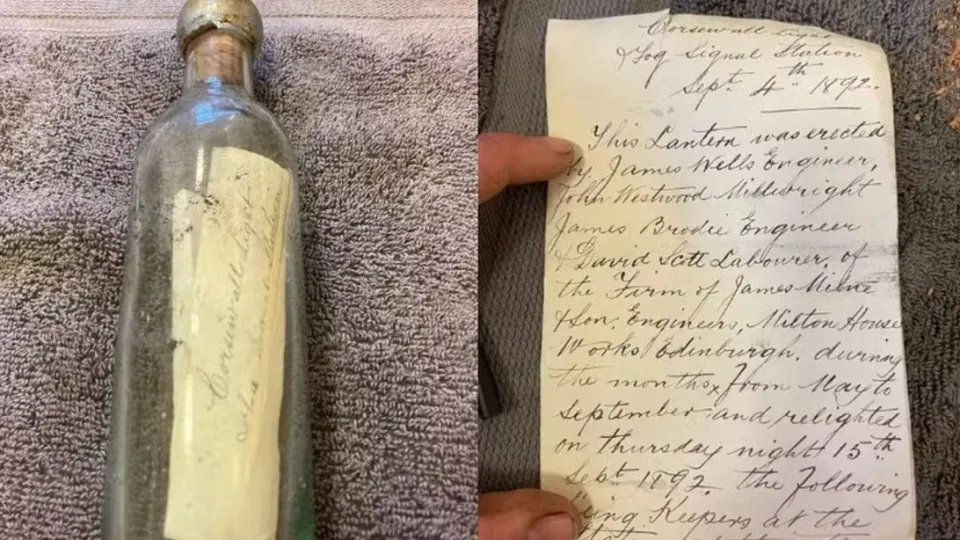 Corsewall Light
Corsewall Light
& Fog Signal Station
Sept. 4th 1892.
This Lantern was erected
by James Wells Engineer,
John Westwood Millwright
James Brodie Engineer
& David Scott Labourer, of
the Firm of James Milne
& Son, Engineers, Milton House
Works Edinburgh, during
the months from May to
September and relighted
on thursday night 15th
Sept 1892. the following
being Keepers at the